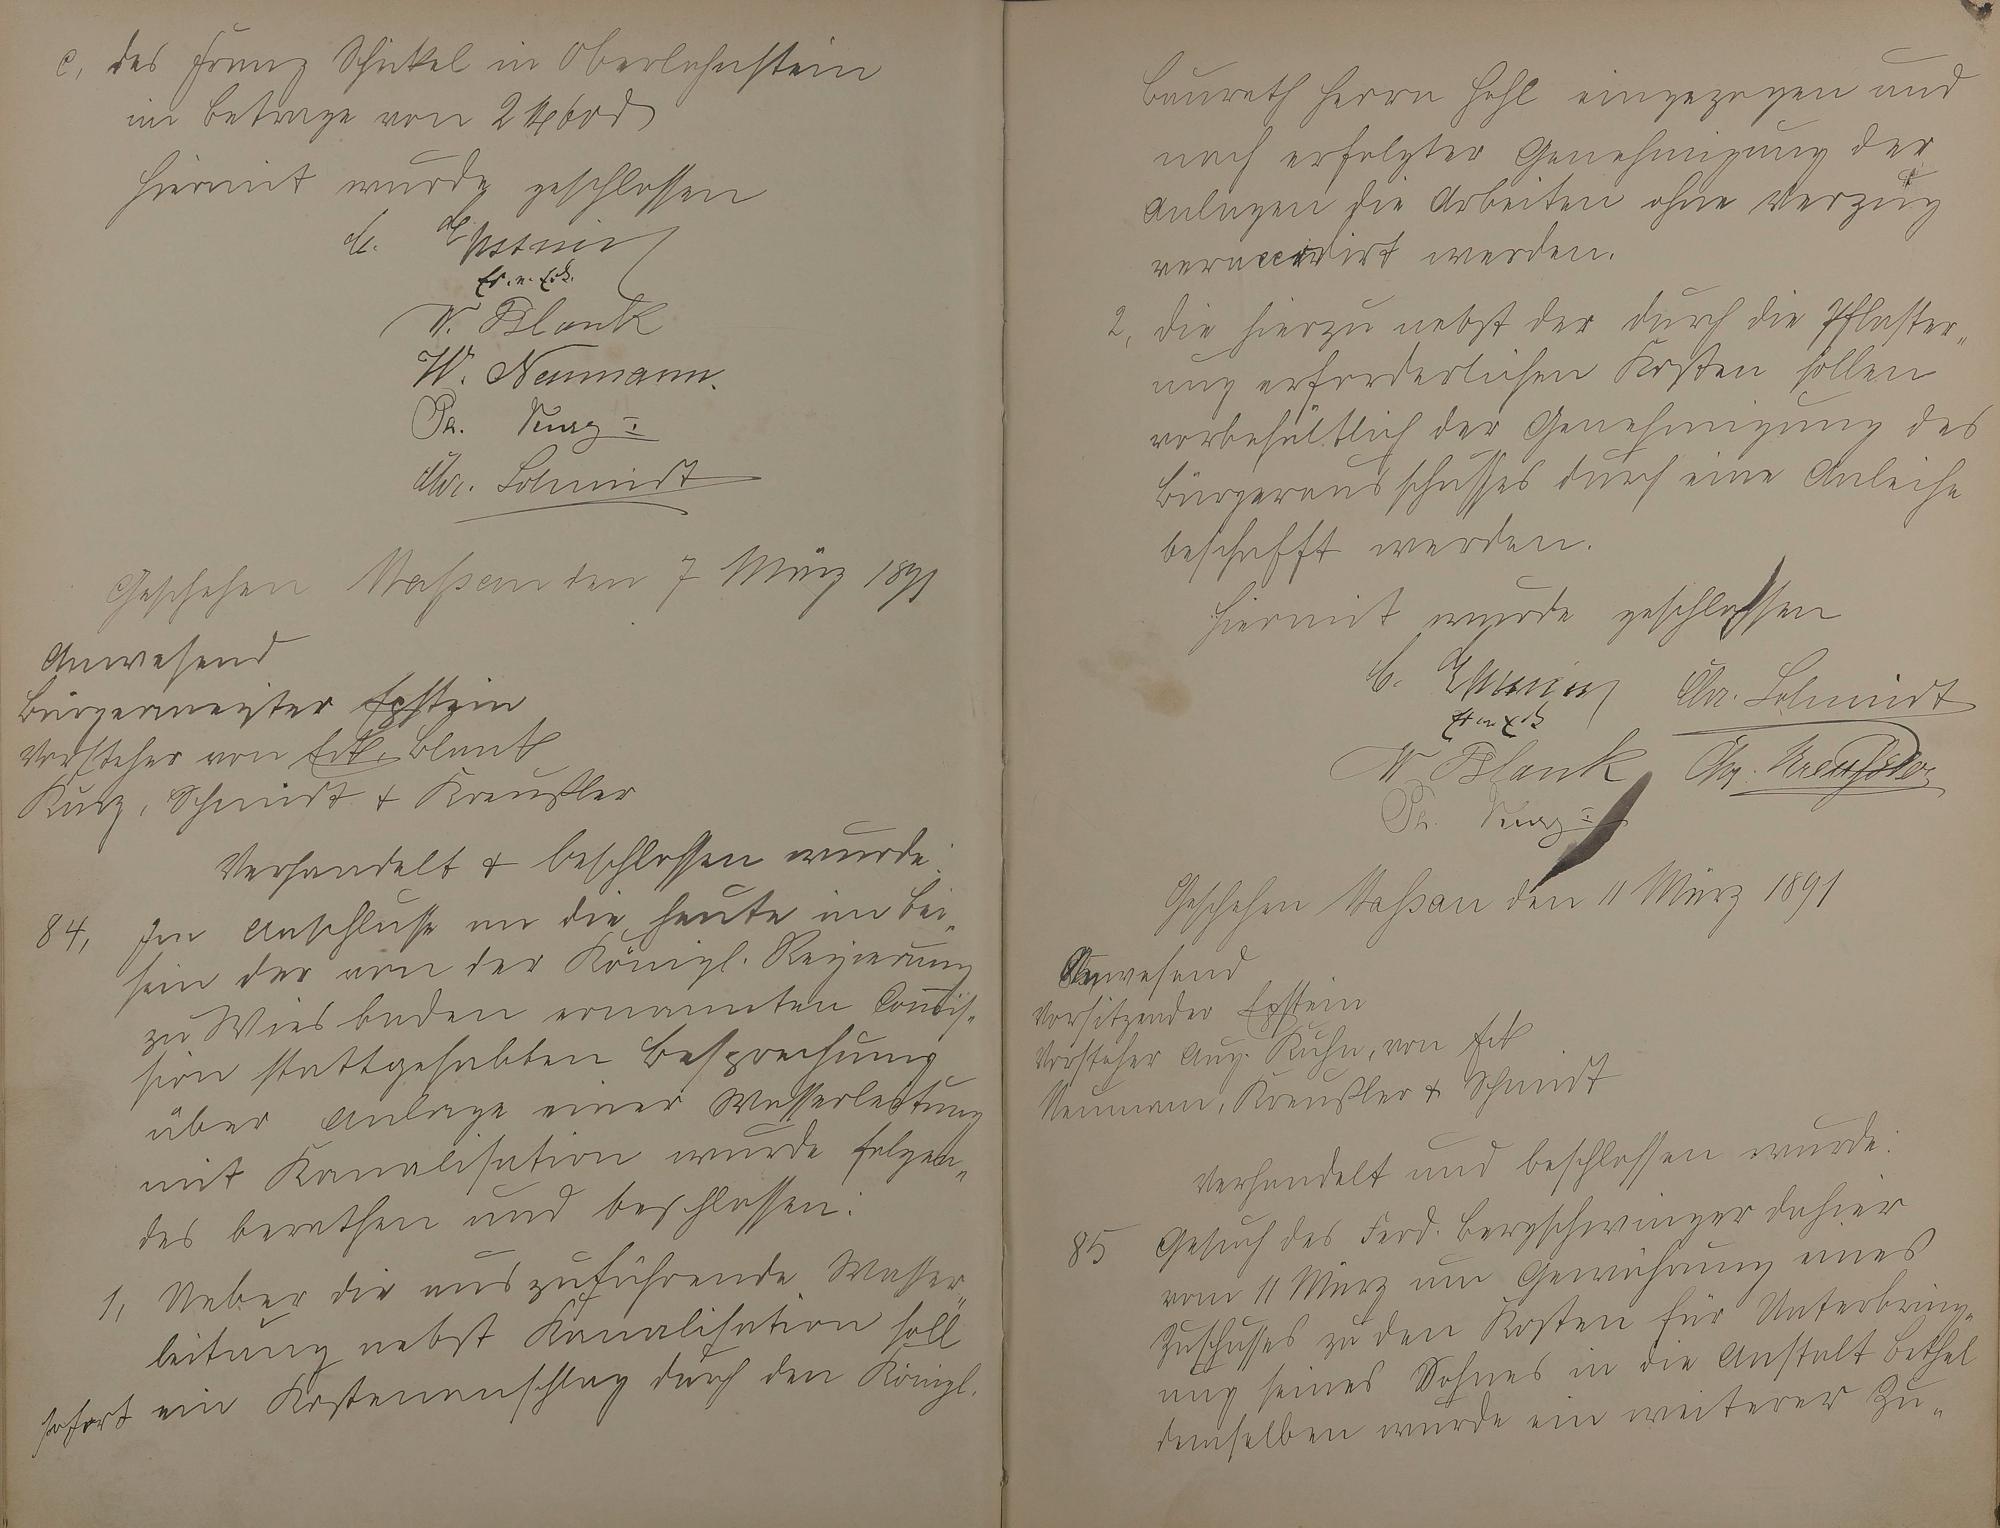 c, des Franz Schickel in Oberlahnstein
im Betrage von 2 M 60 d
Hiermit wurde geschlossen
C. Epstein
Er. v. Eck.
W. Blank
W. Neumann.
Ph. Kurz I
Chr. Schmidt
Geschehen Nassau den 7 März 1891
Anwesend
Bürgermeister Epstein
Vorsteher von Eck, Blank
Kurz, Schmidt + Kreußler
Verhandelt + beschlossen wurde:
84, Im Anschlusse an die heute im Bei„
sein der von der Königl. Regierung
zu Wiesbaden ernannten Com̄is„
sion stattgehabten Besprechung
über Anlage einer Wasserleitung
mit Kanalisation wurde folgen„
des berathen und beschlossen:
1, Ueber die auszuführende Wasser„
leitung nebst Kanalisation soll
sofort ein Kostenanschlag durch den Königl.
Baurath Herrn Hehl eingezogen und
nach erfolgter Genehmigung der
Anlagen die Arbeiten ohne Verzug
veraccordirt werden.
2, Die hierzu nebst der durch die Pflaster„
ung erforderlichen Kosten sollen
vorbehältlich der Genehmigung des
Bürgerausschusses durch eine Anleihe
beschafft werden.
Hiermit wurde geschlossen
C. Epstein Chr. Schmidt
Er. v. Eck
W Blank Chr. Kreußler
Ph. Kurz I
Geschehen Nassau den 11 März 1891
Anwesend
Vorsitzender Epstein
Vorsteher Aug. Kuhn, von Eck
Neumann, Kreußler + Schmidt
Verhandelt und beschlossen wurde:
85 Gesuch des Ferd. Bergschwinger dahier
vom 11 März um Gewährung eines
Zuschusses zu den Kosten für Unterbring„
ung seines Sohnes in die Anstalt Bethel
demselben wurde ein weiterer Zu„